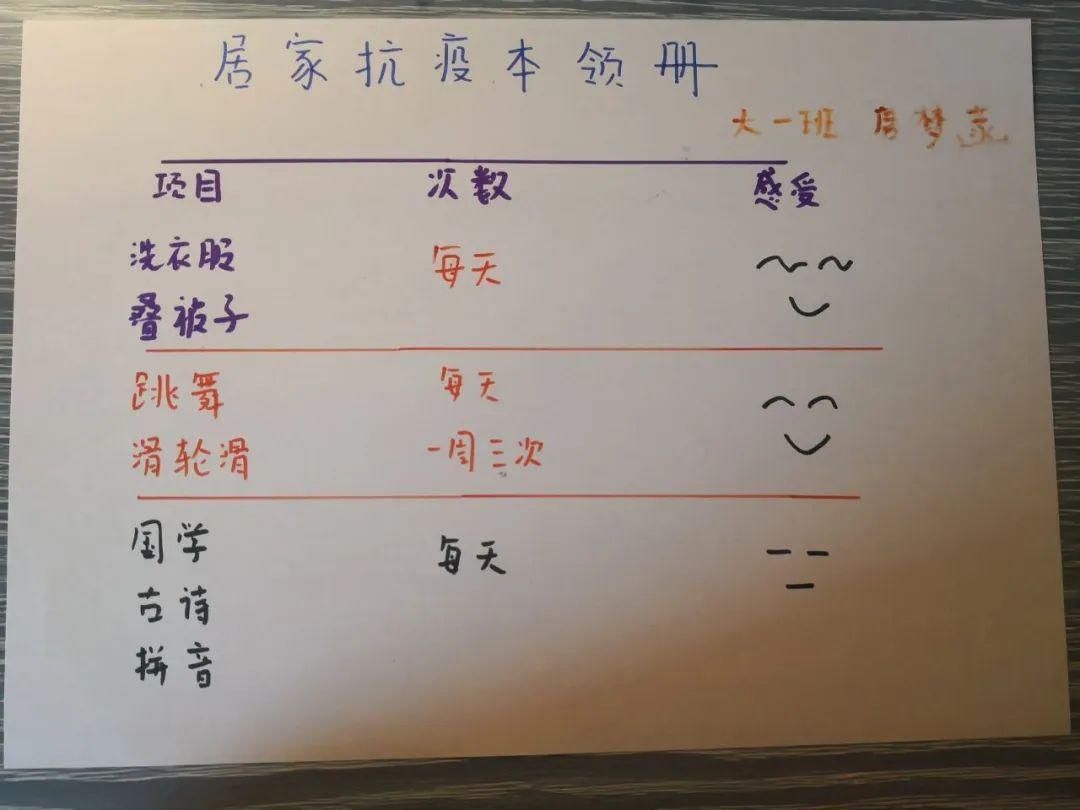 居家抗疫本领册
大一班 房梦家
项目 次数 感受
洗衣服 每天
叠被子
跳舞 每天
滑轮滑 一周三次
国学 每天
古诗
拼音